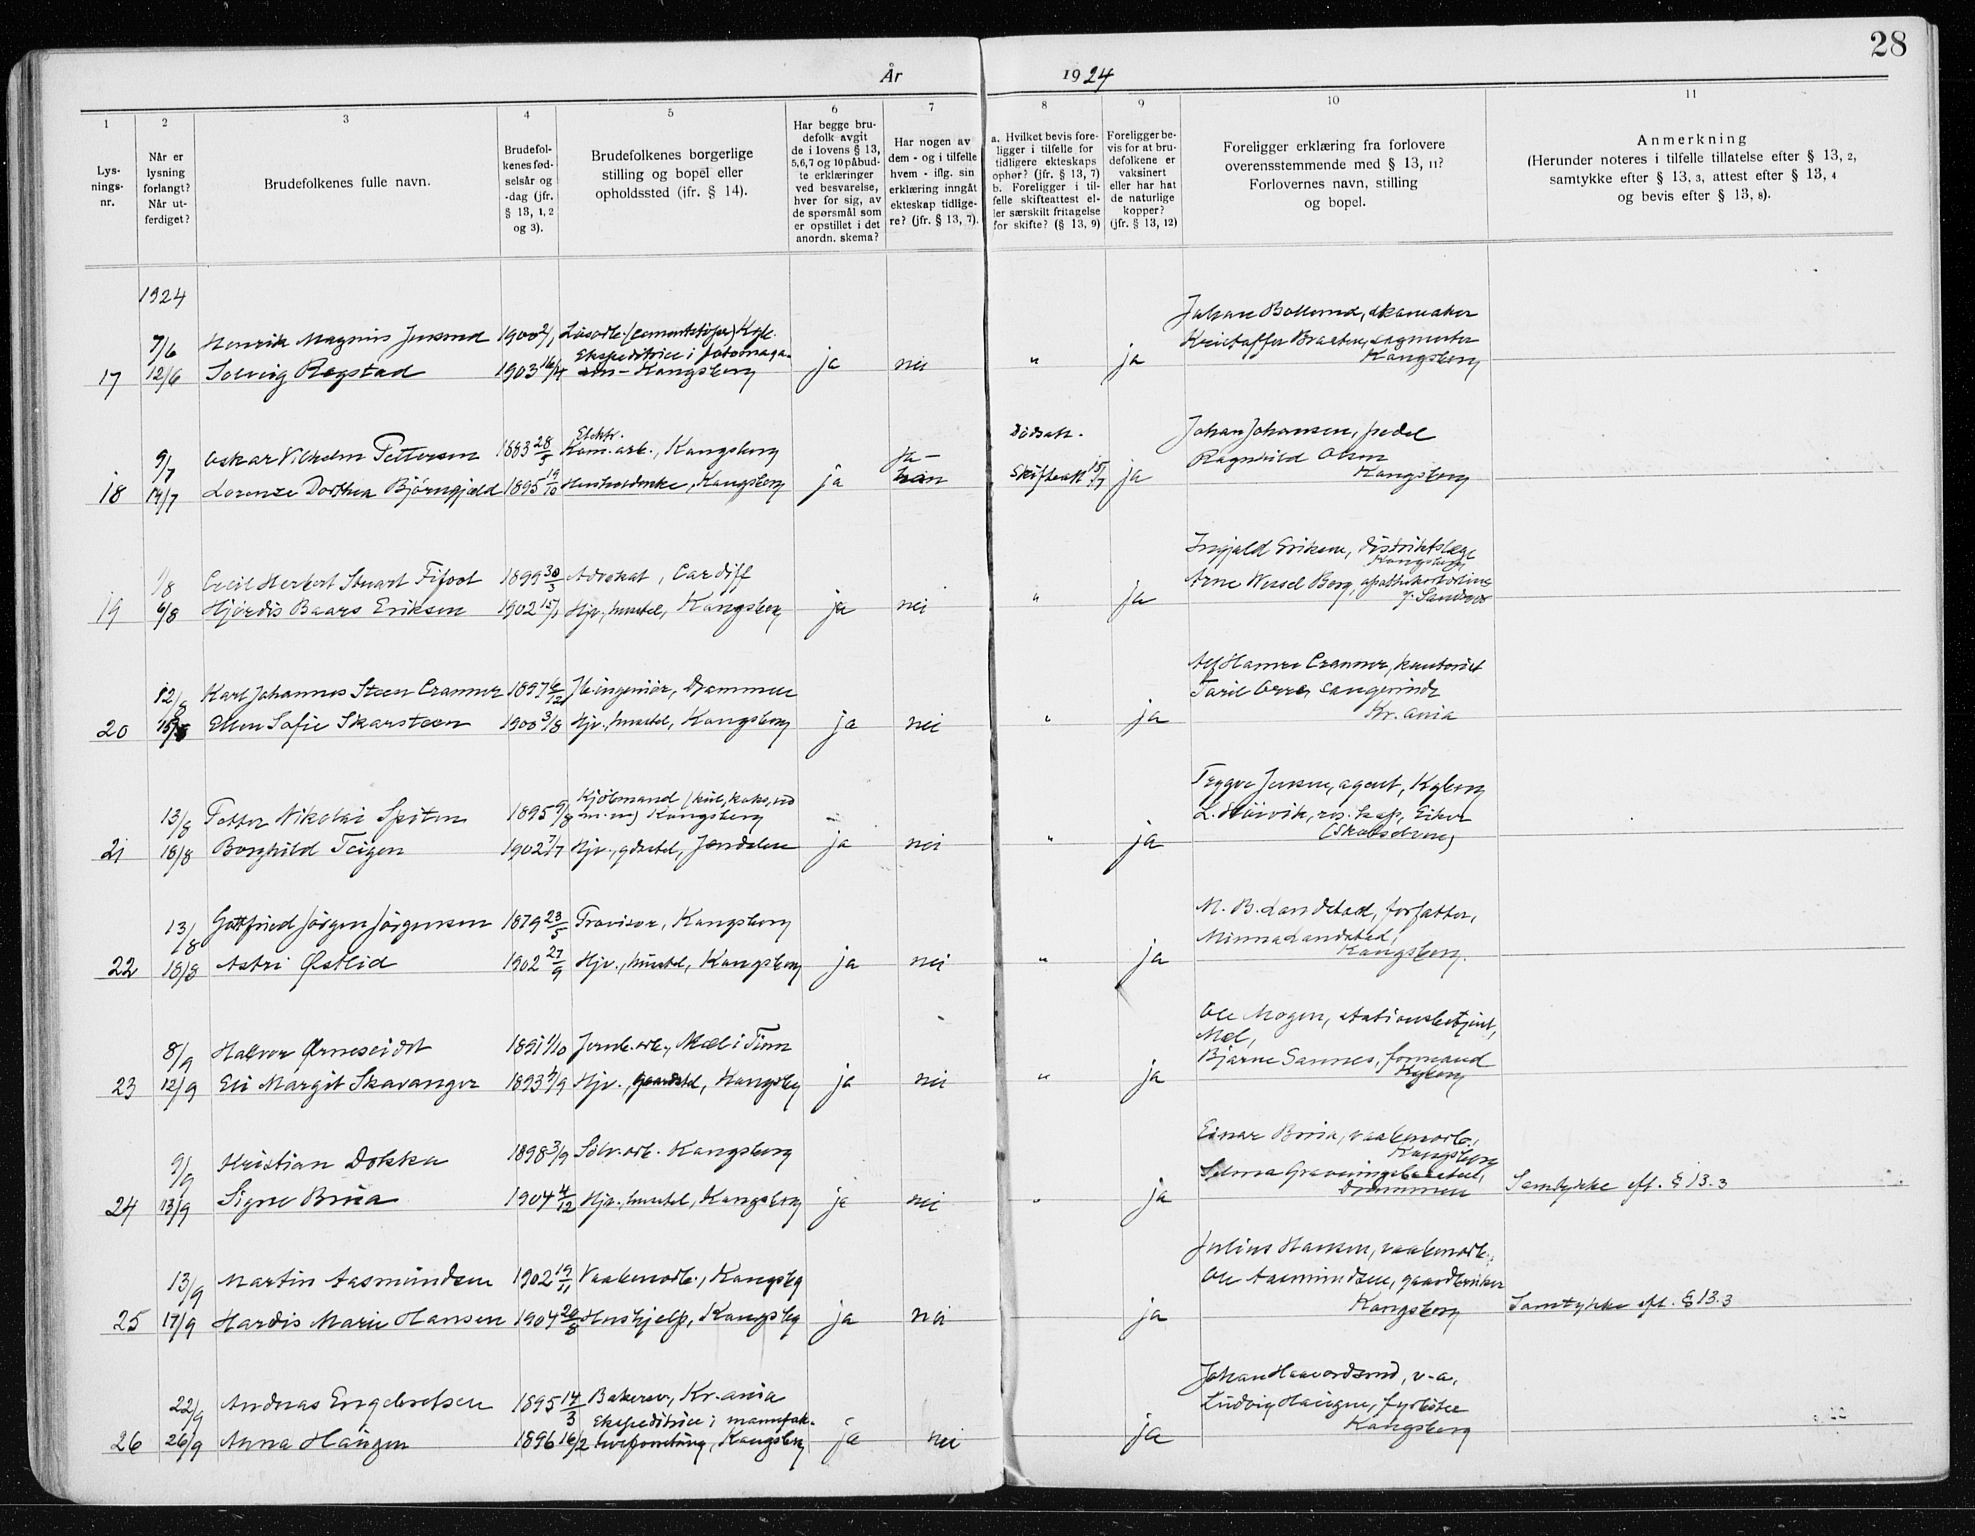 28
År 1924
1
2
3
4
5
6
7
8
9
10
11
Lys-
nings-
nr.
Når er
lysning
forlangt?
Når ut-
ferdiget?
Brudefolkenes fulle navn.
Brudefol-
kenes fød-
selsår og
-dag (jfr.
§ 13, 1, 2
og 3).
Brudefolkenes borgerlige
stilling og bopel eller
opholdssted (jfr. § 14).
Har begge bru-
defolk avgit
de i lovens § 13,
5,6,7 og 10 påbud-
te erklæringer
ved besvarelse,
hver for sig, av
de spørsmål som
er opstillet i det
anordn. skema?
Har nogen av
dem - og i tilfelle
hvem - iflg. sin
erklæring inngåt
ekteskap tidlige-
re? (jfr. § 13, 7).
a. Hvilket bevis fore-
ligger i tilfelle for
tidligere ekteskaps
ophør? (jfr. § 13, 7)
b. Foreligger i til-
felle skifteattest el-
ler særskilt fritagelse
for skifte? (§ 13, 9)
Foreligger be-
vis for at bru-
defolkene er
vaksinert
eller har hat
de naturlige
kopper?
(jfr. § 13, 12)
Foreligger erklæring fra forlovere
overensstemmende med § 13, 11?
Forlovernes navn, stilling
og bopel.
Anmerkning
(Herunder noteres i tilfelle tillatelse efter § 13, 2,
samtykke efter § 13, 3, attest efter § 13, 4
og bevis efter § 13, 8).
1924
7/6 Henrik Magnus 1900 2/1
Johan
Ekspeditrice i
17 12/6 Solveig Rogstad 1903 16/4 Kongsberg ja nei " ja Kongsberg
9/7 Oskar Vilhelm Pettersen 1883 28/5 Elektr. Kom. arb., Kongsberg ja- Dødsatt. Johan Johansen, pedel
Ragnhild Olsen
18 14/7 Lorense Dorthea Bjørngjeld 1895 19/10 Kongsberg ja han Skifteatt 15/7 ja Kongsberg
1/8 Cecil Herbert Stuart Fifoot 1899 30/5 Advokat, Cardiff Ingjald Eriksen, distriktslæge
Kongsberg
19 6/8 Hjørdis Baars Eriksen 1902 15/1 Hjv., husstel, Kongsberg ja nei " ja Arne Wessel Berg,
12/8 Karl Johannes Steen Cranner 1897 6/12 Jb.ingeniør, Drammen
20 15/8 Ellen Sofie Skarsteen 1900 3/8 Hjv. husstel, Kongsberg ja nei " ja Kr.ania
13/8 Nikolai Spiten 1895 9/8 Kjøbmand (kul, koks, ved
m.m) Kongsberg Trygve Jensen, agent, Kgberg
Eiker
21 18/8 Borghild Teigen 1902 7/7 Hjv., Jondalen ja nei " ja
13/8 Gottfried Jörgen Jörgensen 1879 23/5 Provisor, Kongsberg M. B. Landstad, forfatter,
Minna Landstad,
22 18/8 Astri Østlid 1902 27/9 Hjv., husstel, Kongsberg ja nei " ja Kongsberg.
8/9 Halvor Ørneseidet 1891 1/10 Jernb.arb., Mæl i Tinn Ole Mogen, stationsbetjent,
Mæl,
Bjarne Sannes, formand
23 12/9 Eli Margit Skavanger 1893 Hjv., gaardstel, Kongsbg ja nei " ja Kgberg
9/9 Kristian Dokka 1898 3/9 Sølv.arb. Kongsberg Einar Brua, vaabenarb.,
Kongsberg
Selma
24 13/9 Signe Brua 1904 4/12 Hjv., husstel, Kongsberg ja nei " ja Drammen Samtykke eft. § 13.3
13/9 Martin Aasmundsen 1902 19/11 Vaabenarb., Kongsbg Julius Hansen, vaabenarb.,
Ole Aasmundsen, gaardbruker
25 17/9 Hardis Marie Hansen 1904 26/8 Hushjelp, Kongsbg ja nei ja Kongsberg Samtykke eft. § 13.3
22/9 Andreas Engebretsen 1895 14/3 Bakersv., Kr.ania Johan Haavardsrud, v-a.
Ekspeditrice i manufak- Ludvig Haugen, fyrbøter
26 26/9 Anna Haugen 1896 16/2 turforretning, Kongsberg ja nei ja Kongsberg